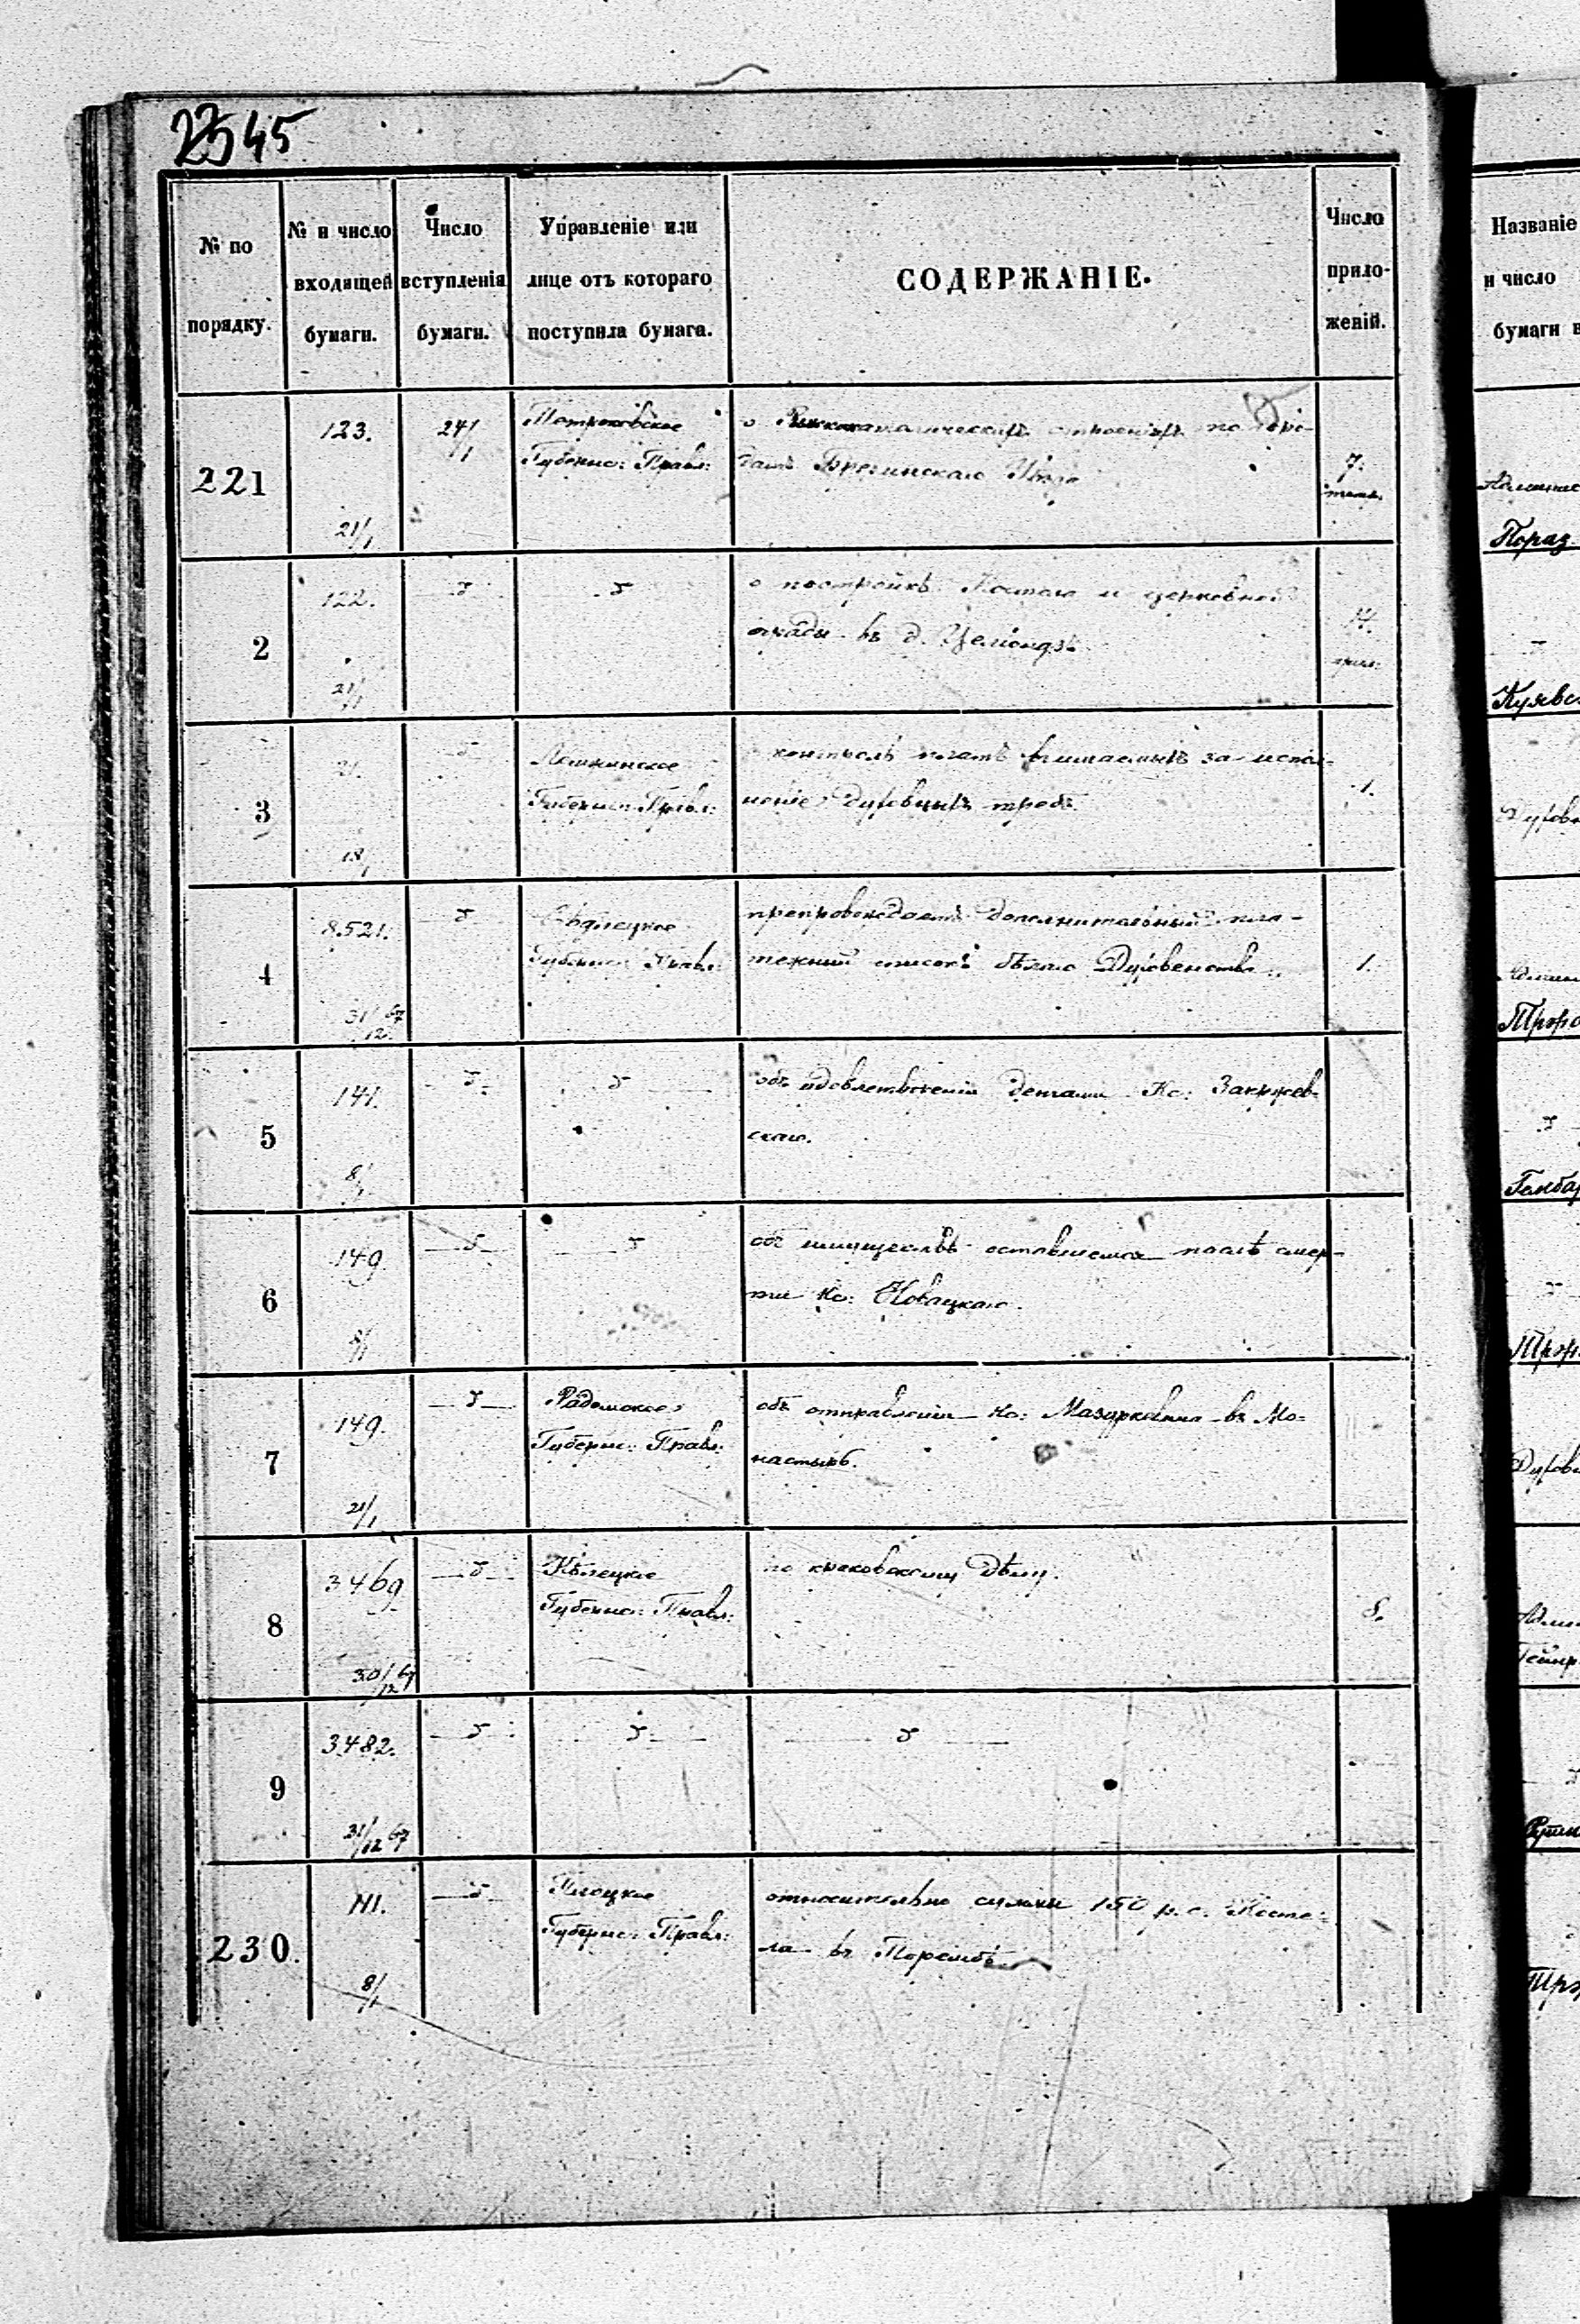 2345
№ по порядку.
№ и число входящей бумаги.
Число вступленія бумаги.
Управленіе или лице отъ котораго поступила бумага.
СОДЕРЖАНІЕ.
Число прило-
женій.
221
123.
21/1
24/1
Петроковское
Губернс: Правл:
о Римскокатолическихъ строеніяхъ по
Брезинскаго Уѣзда
7.
2
122.
21/1
о постройкѣ Костела и церковной
ограды въ д.
14.
3
21.
18/1
Ломжинское
Губернс: Правл:
контроль платъ взимаемыхъ за испол-
неніе Духовныхъ требъ.
1.
4
8.521.
31/12 67
Сѣдлецкое
Губернс: Правл:
препровождаетъ дополнительный пла-
тежный списокъ бѣлаго Духовенства.
1.
5
141.
8/1
объ удовлетвореніи деньгами Кс: Закржев-
скаго.
6
149.
8/1
объ имуществѣ оставшемся послѣ смер-
ти Кс: Новацкаго.
7
149.
21/1
Радомское
Губернс: Правл:
объ отправленіи Кс: Мазуркевича въ Мо-
настырь.
8
3469
30/12 67
Кѣлецкое
Губернс: Правл:
по дѣлу.
8.
9
3482.
31/12 67
230.
141.
8/1
Плоцкое
Губернс: Правл:
относительно суммы 150 р. с. Косте-
ла въ Порембѣ
Названіе
и число
бумаги в
Пораз.
Куявс
Духов
Духов